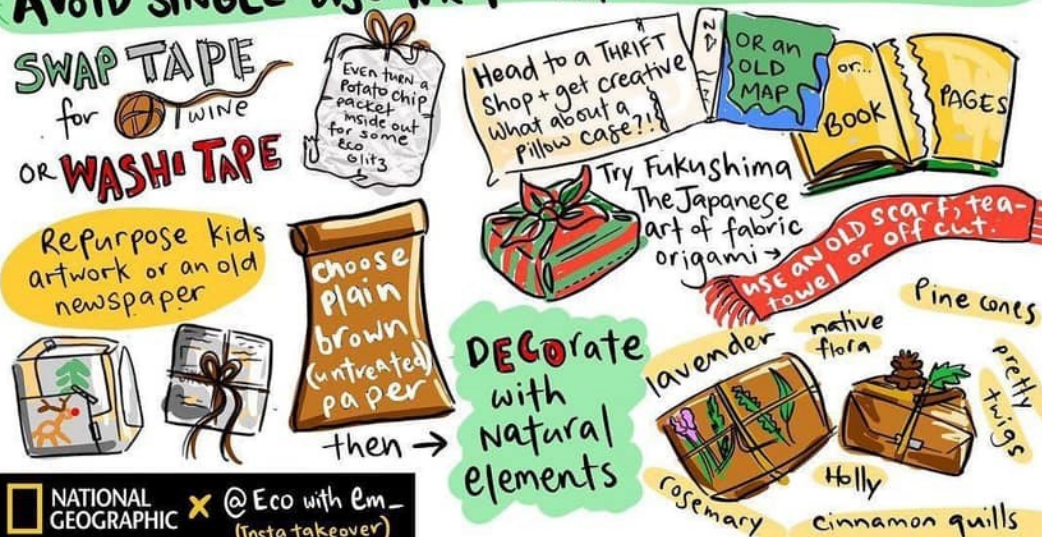 AVOID SINGLE USE
SWAP TAPE
for TWINE
OR WASHI TAPE
EVEN turn a
Potato chip
packet
inside out
for some
Eco
Glitz
Head to a THRIFT
Shop + get creative
What about a
Pillow case?!
OR an
OLD
MAP
or...
BOOK
PAGES
Try Fukushima
The Japanese
art of fabric
origami →
USE AN OLD scarf, tea-
towel or off cut.
Repurpose kids
artwork or an old
newspaper
choose
plain
brown
(untreated)
paper
then →
DECOrate
with
Natural
elements
lavender
native
flora
Pine cones
pretty
twigs
Holly
rosemary
cinnamon quills
NATIONAL
GEOGRAPHIC
X @Eco with em_
(Insta takeover)